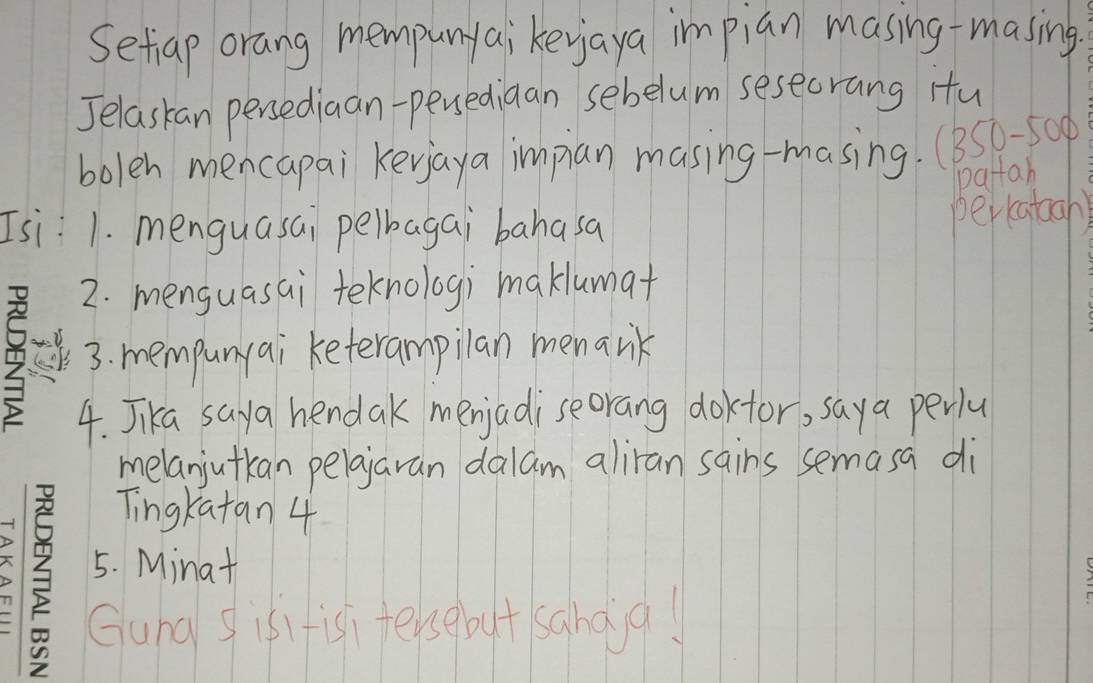 Setiap orang mempunyai kerjaya impian masing-masing.
Jelaskan persediaan-persediaan sebelum seseorang itu
boleh mencapai kerjaya impian masing-masing. (350-500
patah
perkataan)
Isi: 1. menguasai pelbagai bahasa
2. menguasai teknologi maklumat
3. mempunyai keterampilan menarik
4. Jika saya hendak menjadi seorang doktor, saya perlu
melanjutkan pelajaran dalam aliran sains semasa di
Tingkatan 4
5. Minat
Guna 5 isi-isi tersebut sahaja!
PRUDENTIAL
PRUDENTIAL BSN
TAKAFUL
DATE: